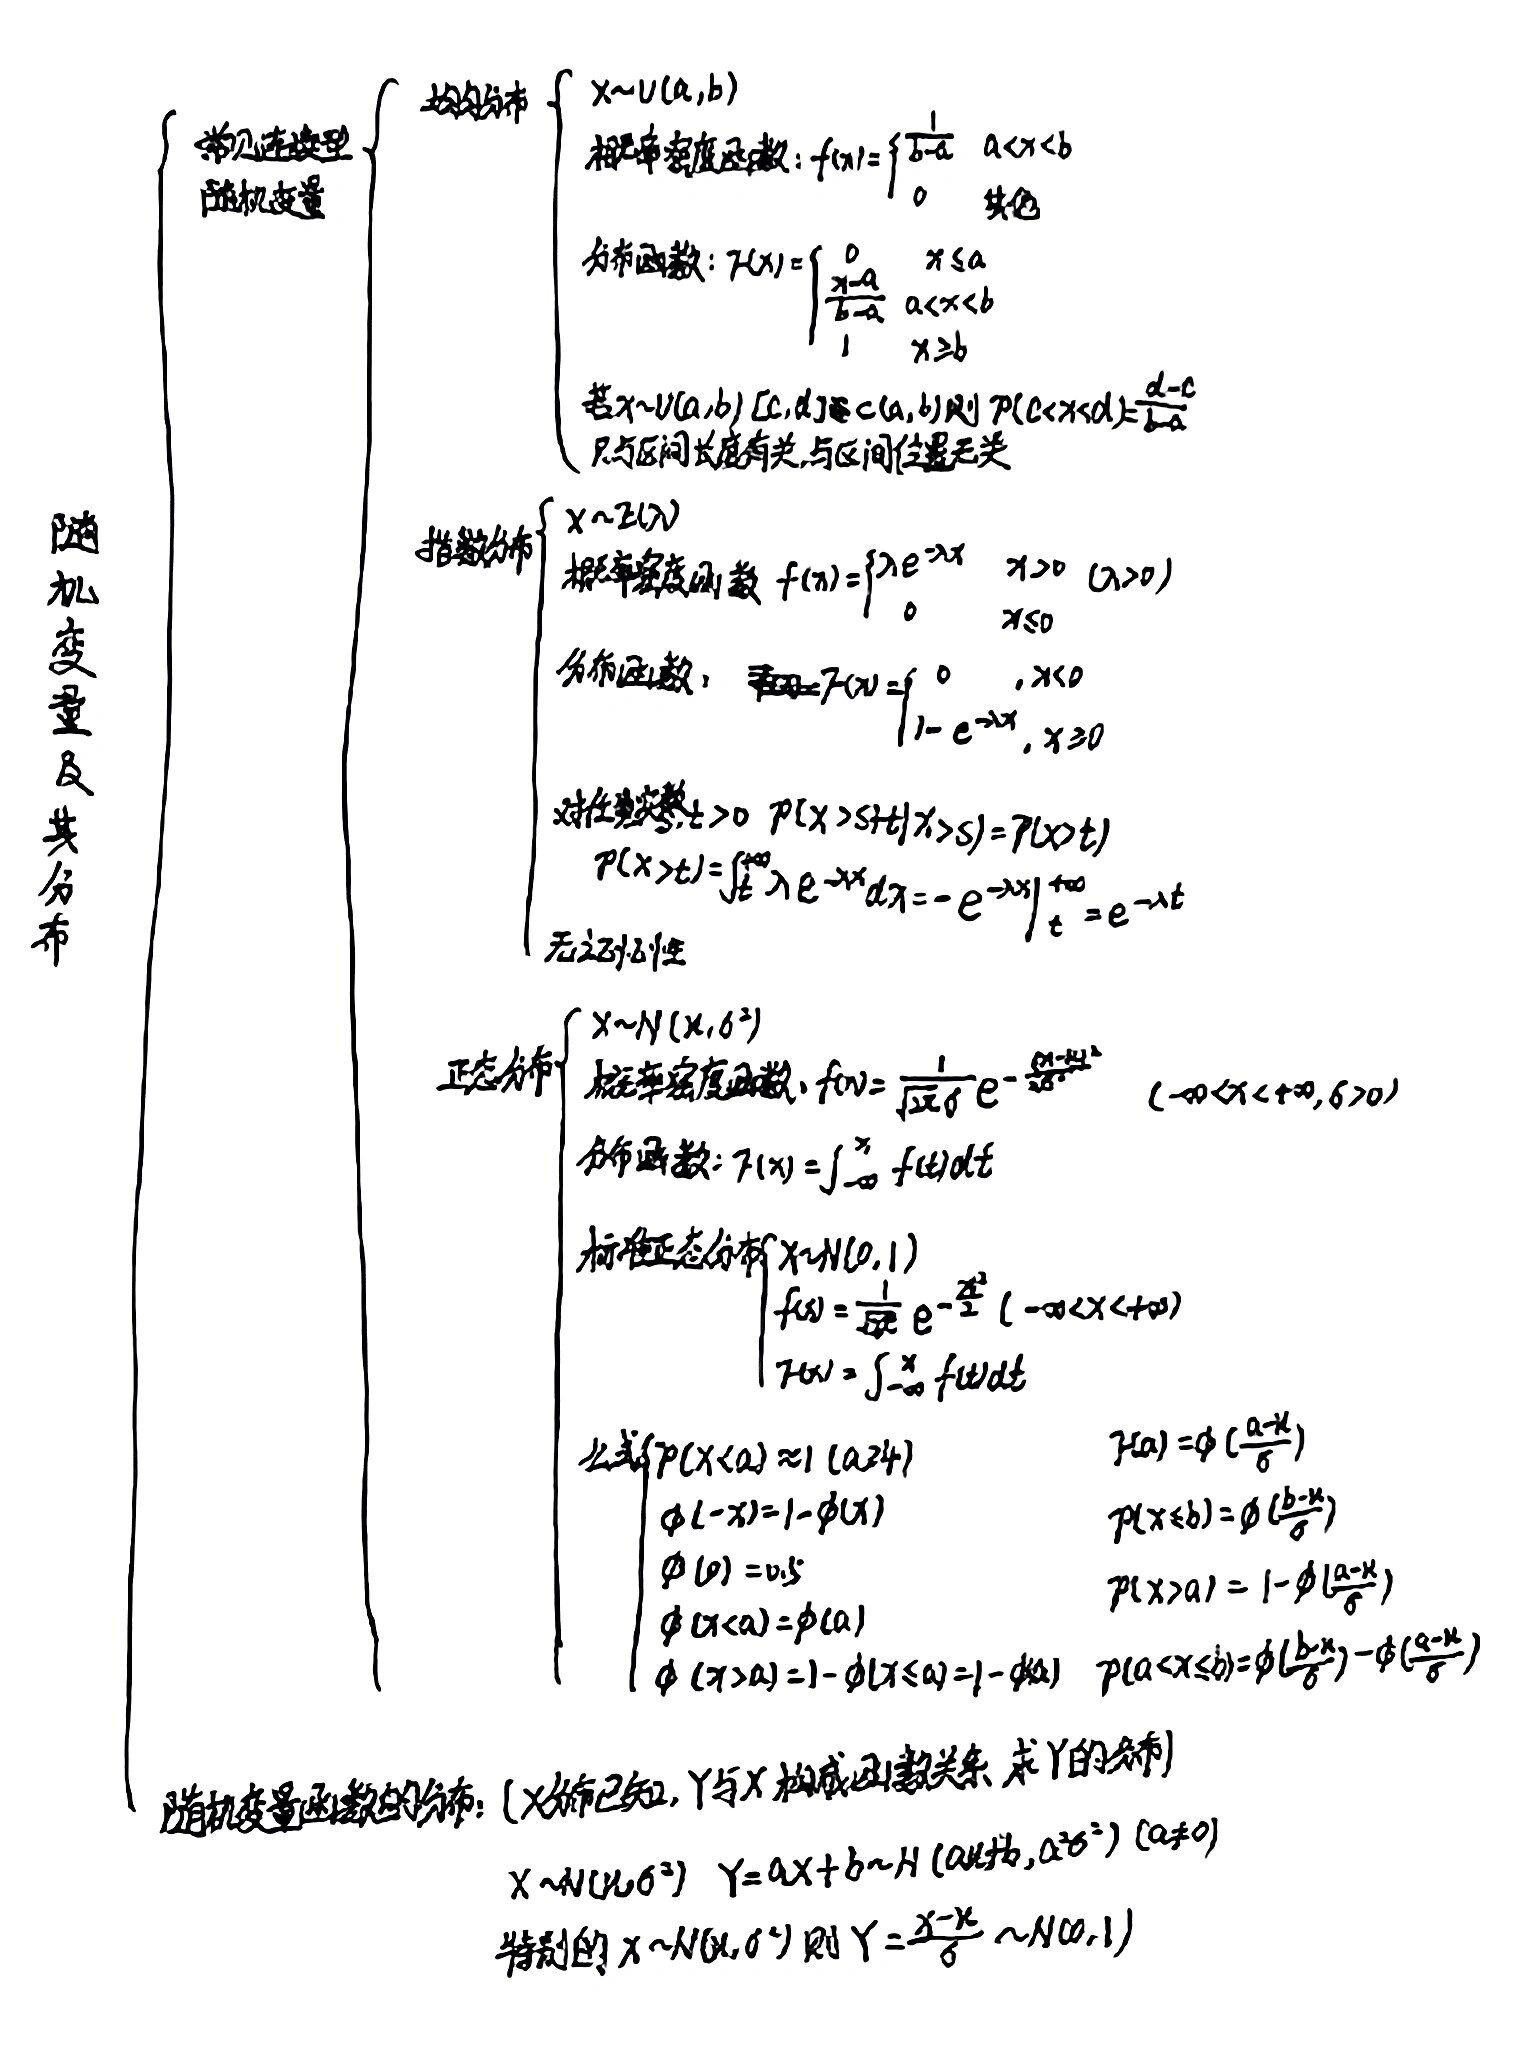 随机变量及其分布
常见连续型
随机变量
均匀分布
X~U(a,b)
概率密度函数: f(x)={ 1/(b-a) a<x<b
0 其他
分布函数: F(x)={ 0 x≤a
(x-a)/(b-a) a<x<b
1 x≥b
若X~U(a,b) [c,d]⊂(a,b)则 P(c<x<d)=(d-c)/(b-a)
只与区间长度有关,与区间位置无关
指数分布
X~E(λ)
概率密度函数 f(x)={ λe^{-λx} x>0 (λ>0)
0 x≤0
分布函数: F(x)={ 0 , x<0
1-e^{-λx}, x≥0
对任意实数s,t>0 P(X>s+t|X>s)=P(X>t)
P(X>t)=∫_t^{+∞} λe^{-λx}dx=-e^{-λx}|_t^{+∞}=e^{-λt}
无记忆性
正态分布
X~N(μ,σ²)
概率密度函数: f(x)=1/(√2π σ) e^{-(x-μ)²/2σ²} (-∞<x<+∞,σ>0)
分布函数: F(x)=∫_{-∞}^x f(t)dt
标准正态分布
X~N(0,1)
f(x)=1/√2π e^{-x²/2} (-∞<x<+∞)
F(x)=∫_{-∞}^x f(t)dt
公式
P(X<a)≈1 (a≥4) F(a)=φ((a-μ)/σ)
φ(-x)=1-φ(x) P(X≤b)=φ((b-μ)/σ)
φ(0)=0.5 P(X>a)=1-φ((a-μ)/σ)
φ(x<a)=φ(a)
φ(x>a)=1-φ(x≤a)=1-φ(a) P(a<X≤b)=φ((b-μ)/σ)-φ((a-μ)/σ)
随机变量函数的分布: (X分布已知, Y与X构成函数关系 求Y的分布)
X~N(μ,σ²) Y=aX+b~N(aμ+b,a²σ²) (a≠0)
特别的 X~N(μ,σ²) 则 Y=(X-μ)/σ ~N(0,1)